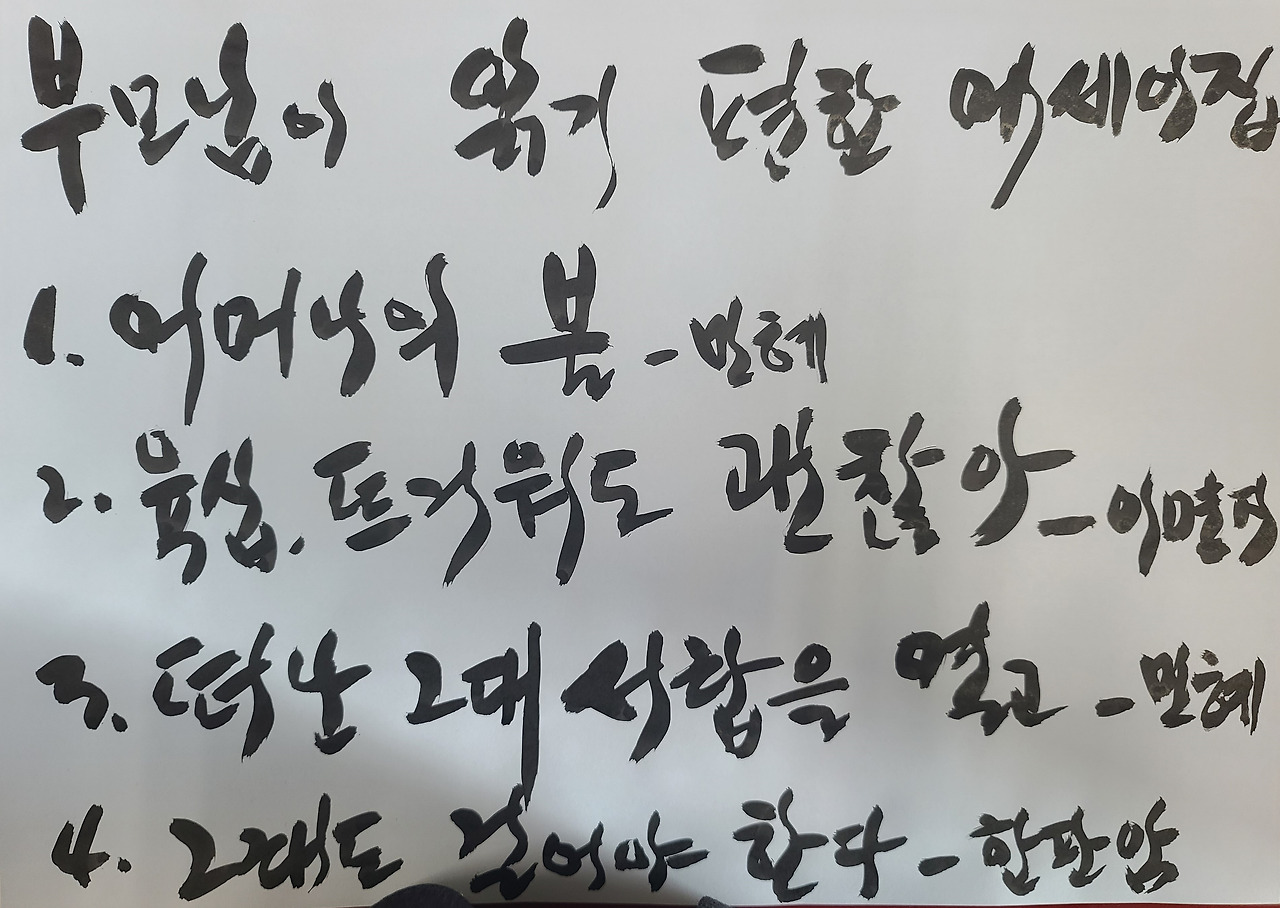 부모님이 읽기 편한 에세이집
1. 어머니의 봄 - 민혜
2. 육십, 뜨거워도 괜찮아 - 이면직
3. 떠난 그대 서랍을 열고 - 민혜
4. 그래도 걸어야 한다 - 한판암